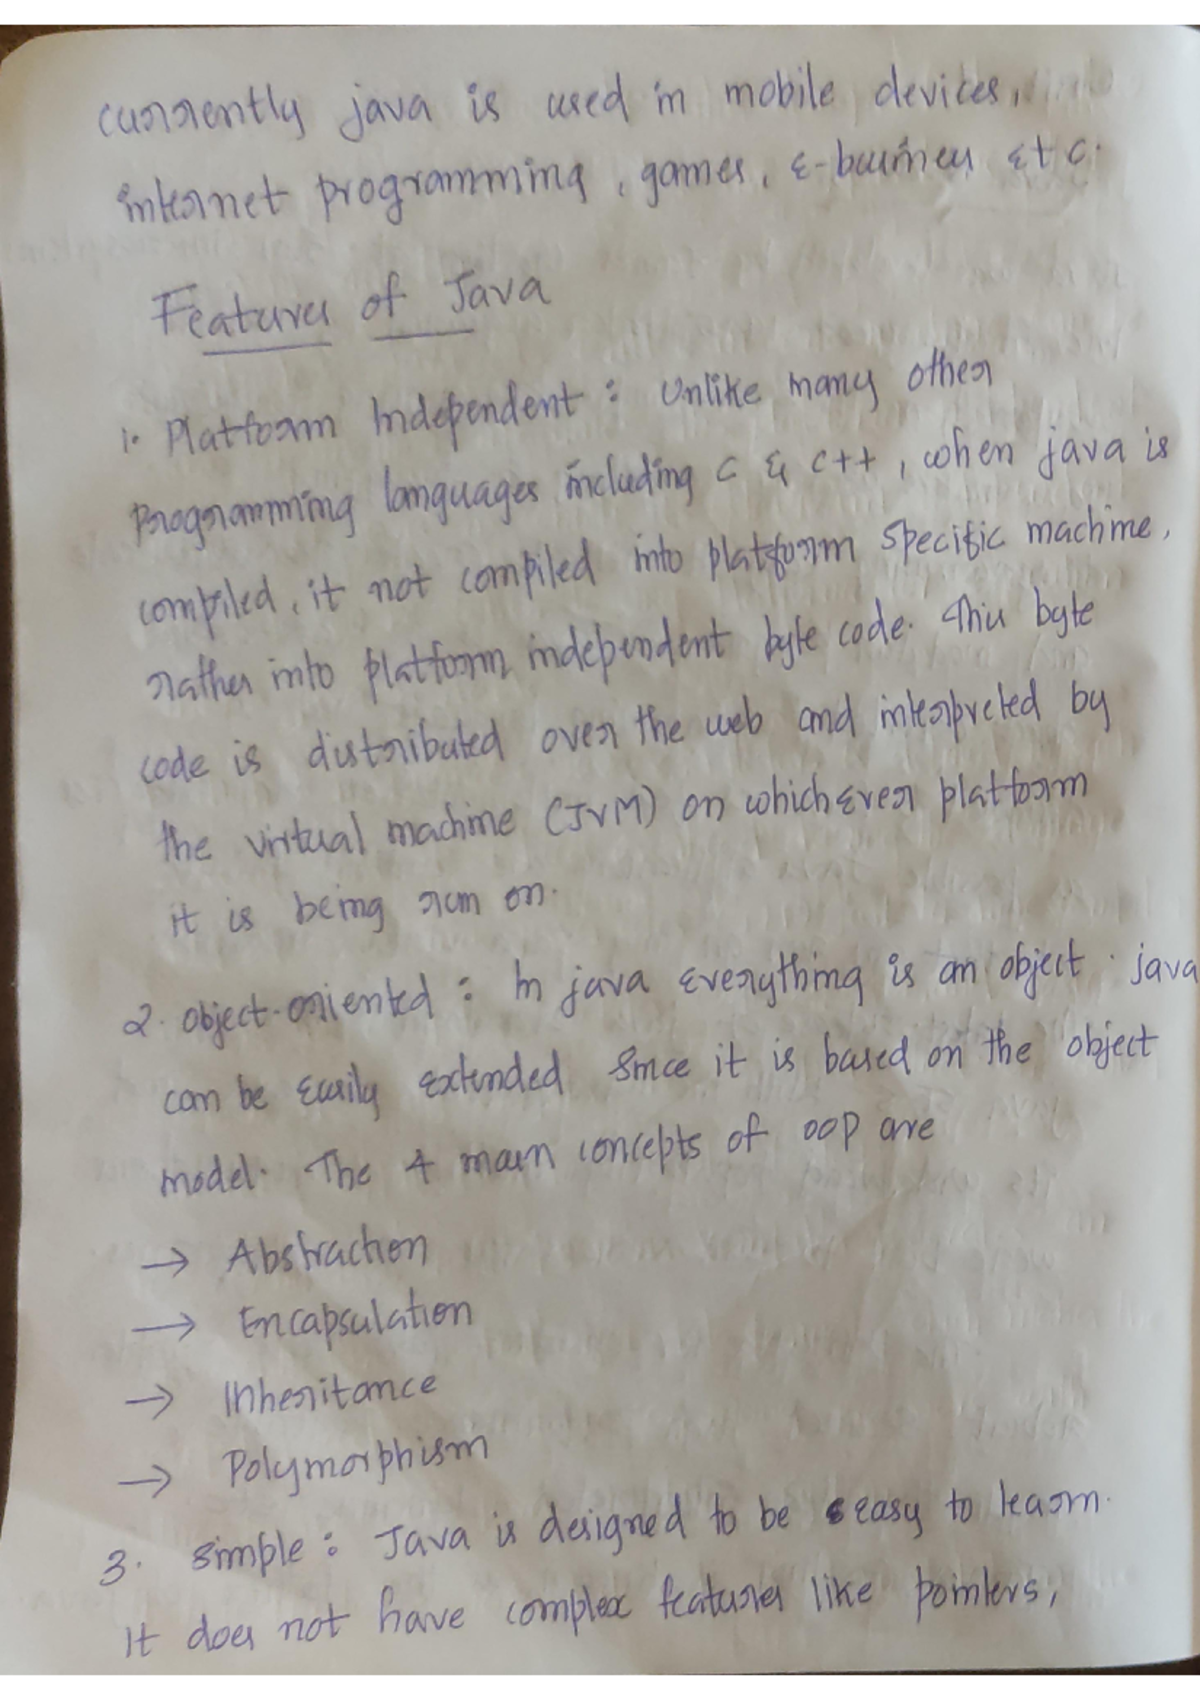 currently java is used in mobile devices,
internet programming, games, E-business Etc.
Features of Java
1. Platform Independent : Unlike many other
Programming languages including C & C++, when java is
compiled, it not compiled into platform specific machine,
rather into platform independent byte code. This byte
code is distributed over the web and interpreted by
the virtual machine (JVM) on whichEver platform
it is being run on.
2. Object-oriented : In java Everything is an object. java
can be Easily Extended Since it is based on the object
model. The 4 main concepts of OOP are
→ Abstraction
→ Encapsulation
→ Inheritance
→ Polymorphism
3. Simple : Java is designed to be easy to learn.
It does not have complex features like pointers,